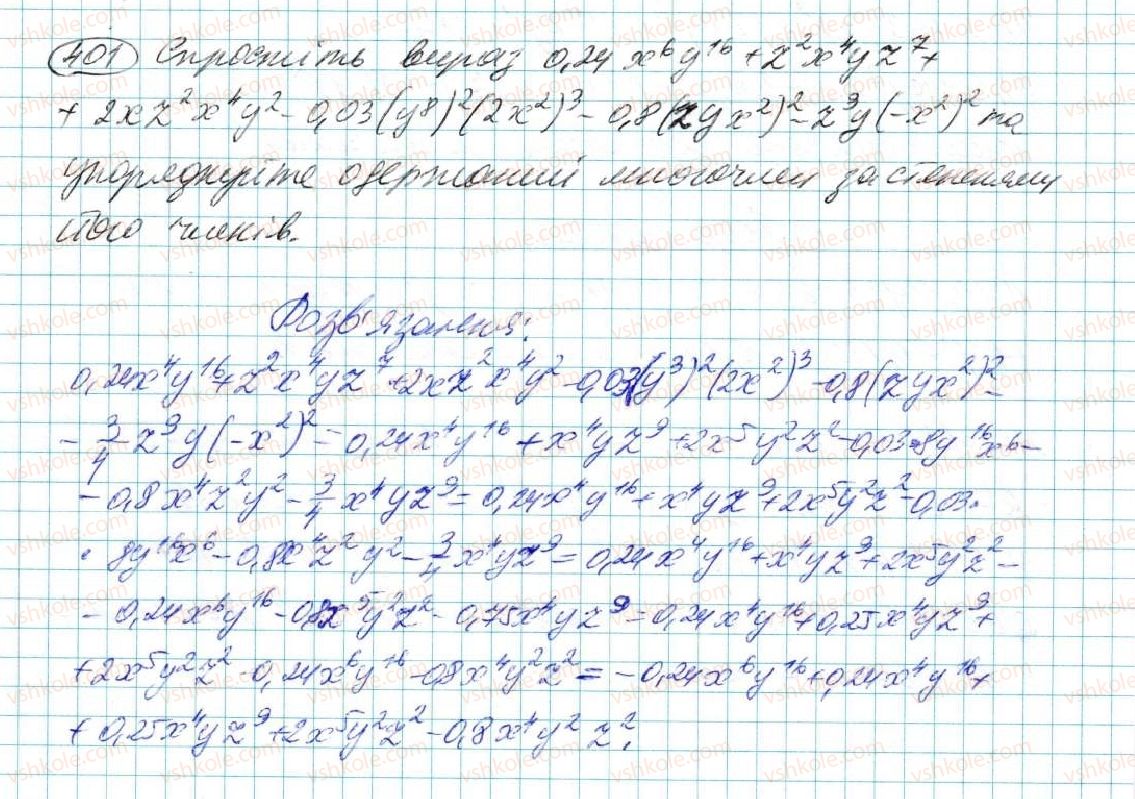 401 Спростіть вираз 0,24 x⁶y¹⁶ + z²x⁴yz⁷ +
+ 2xz²x⁴y² - 0,03(y⁸)²(2x²)³ - 0,8(zyx²)² - z⁹y(-x²)² та
упорядкуйте одержаний многочлен за степенями
його членів.
Розв'язання:
0,24x⁴y¹⁶ + z²x⁴yz⁷ + 2xz²x⁴y² - 0,03(y³)²(2x²)³ - 0,8(zyx²)² -
- 3/4 z⁹y(-x²)² = 0,24x⁴y¹⁶ + x⁴yz⁹ + 2x⁵y²z² - 0,03·8y¹⁶x⁶ -
- 0,8x⁴z²y² - 3/4 x⁴yz⁹ = 0,24x⁴y¹⁶ + x⁴yz⁹ + 2x⁵y²z² - 0,03·
· 8y¹⁶x⁶ - 0,8x⁴z²y² - 3/4 x⁴yz⁹ = 0,24x⁴y¹⁶ + x⁴yz⁹ + 2x⁵y²z² -
- 0,24x⁶y¹⁶ - 0,8x⁵y²z² - 0,75x⁴yz⁹ = 0,24x⁴y¹⁶ + 0,25x⁴yz⁹ +
+ 2x⁵y²z² - 0,24x⁶y¹⁶ - 0,8x⁴y²z² = - 0,24x⁶y¹⁶ + 0,24x⁴y¹⁶ +
+ 0,25x⁴yz⁹ + 2x⁵y²z² - 0,8x⁴y²z².
vshkole.com